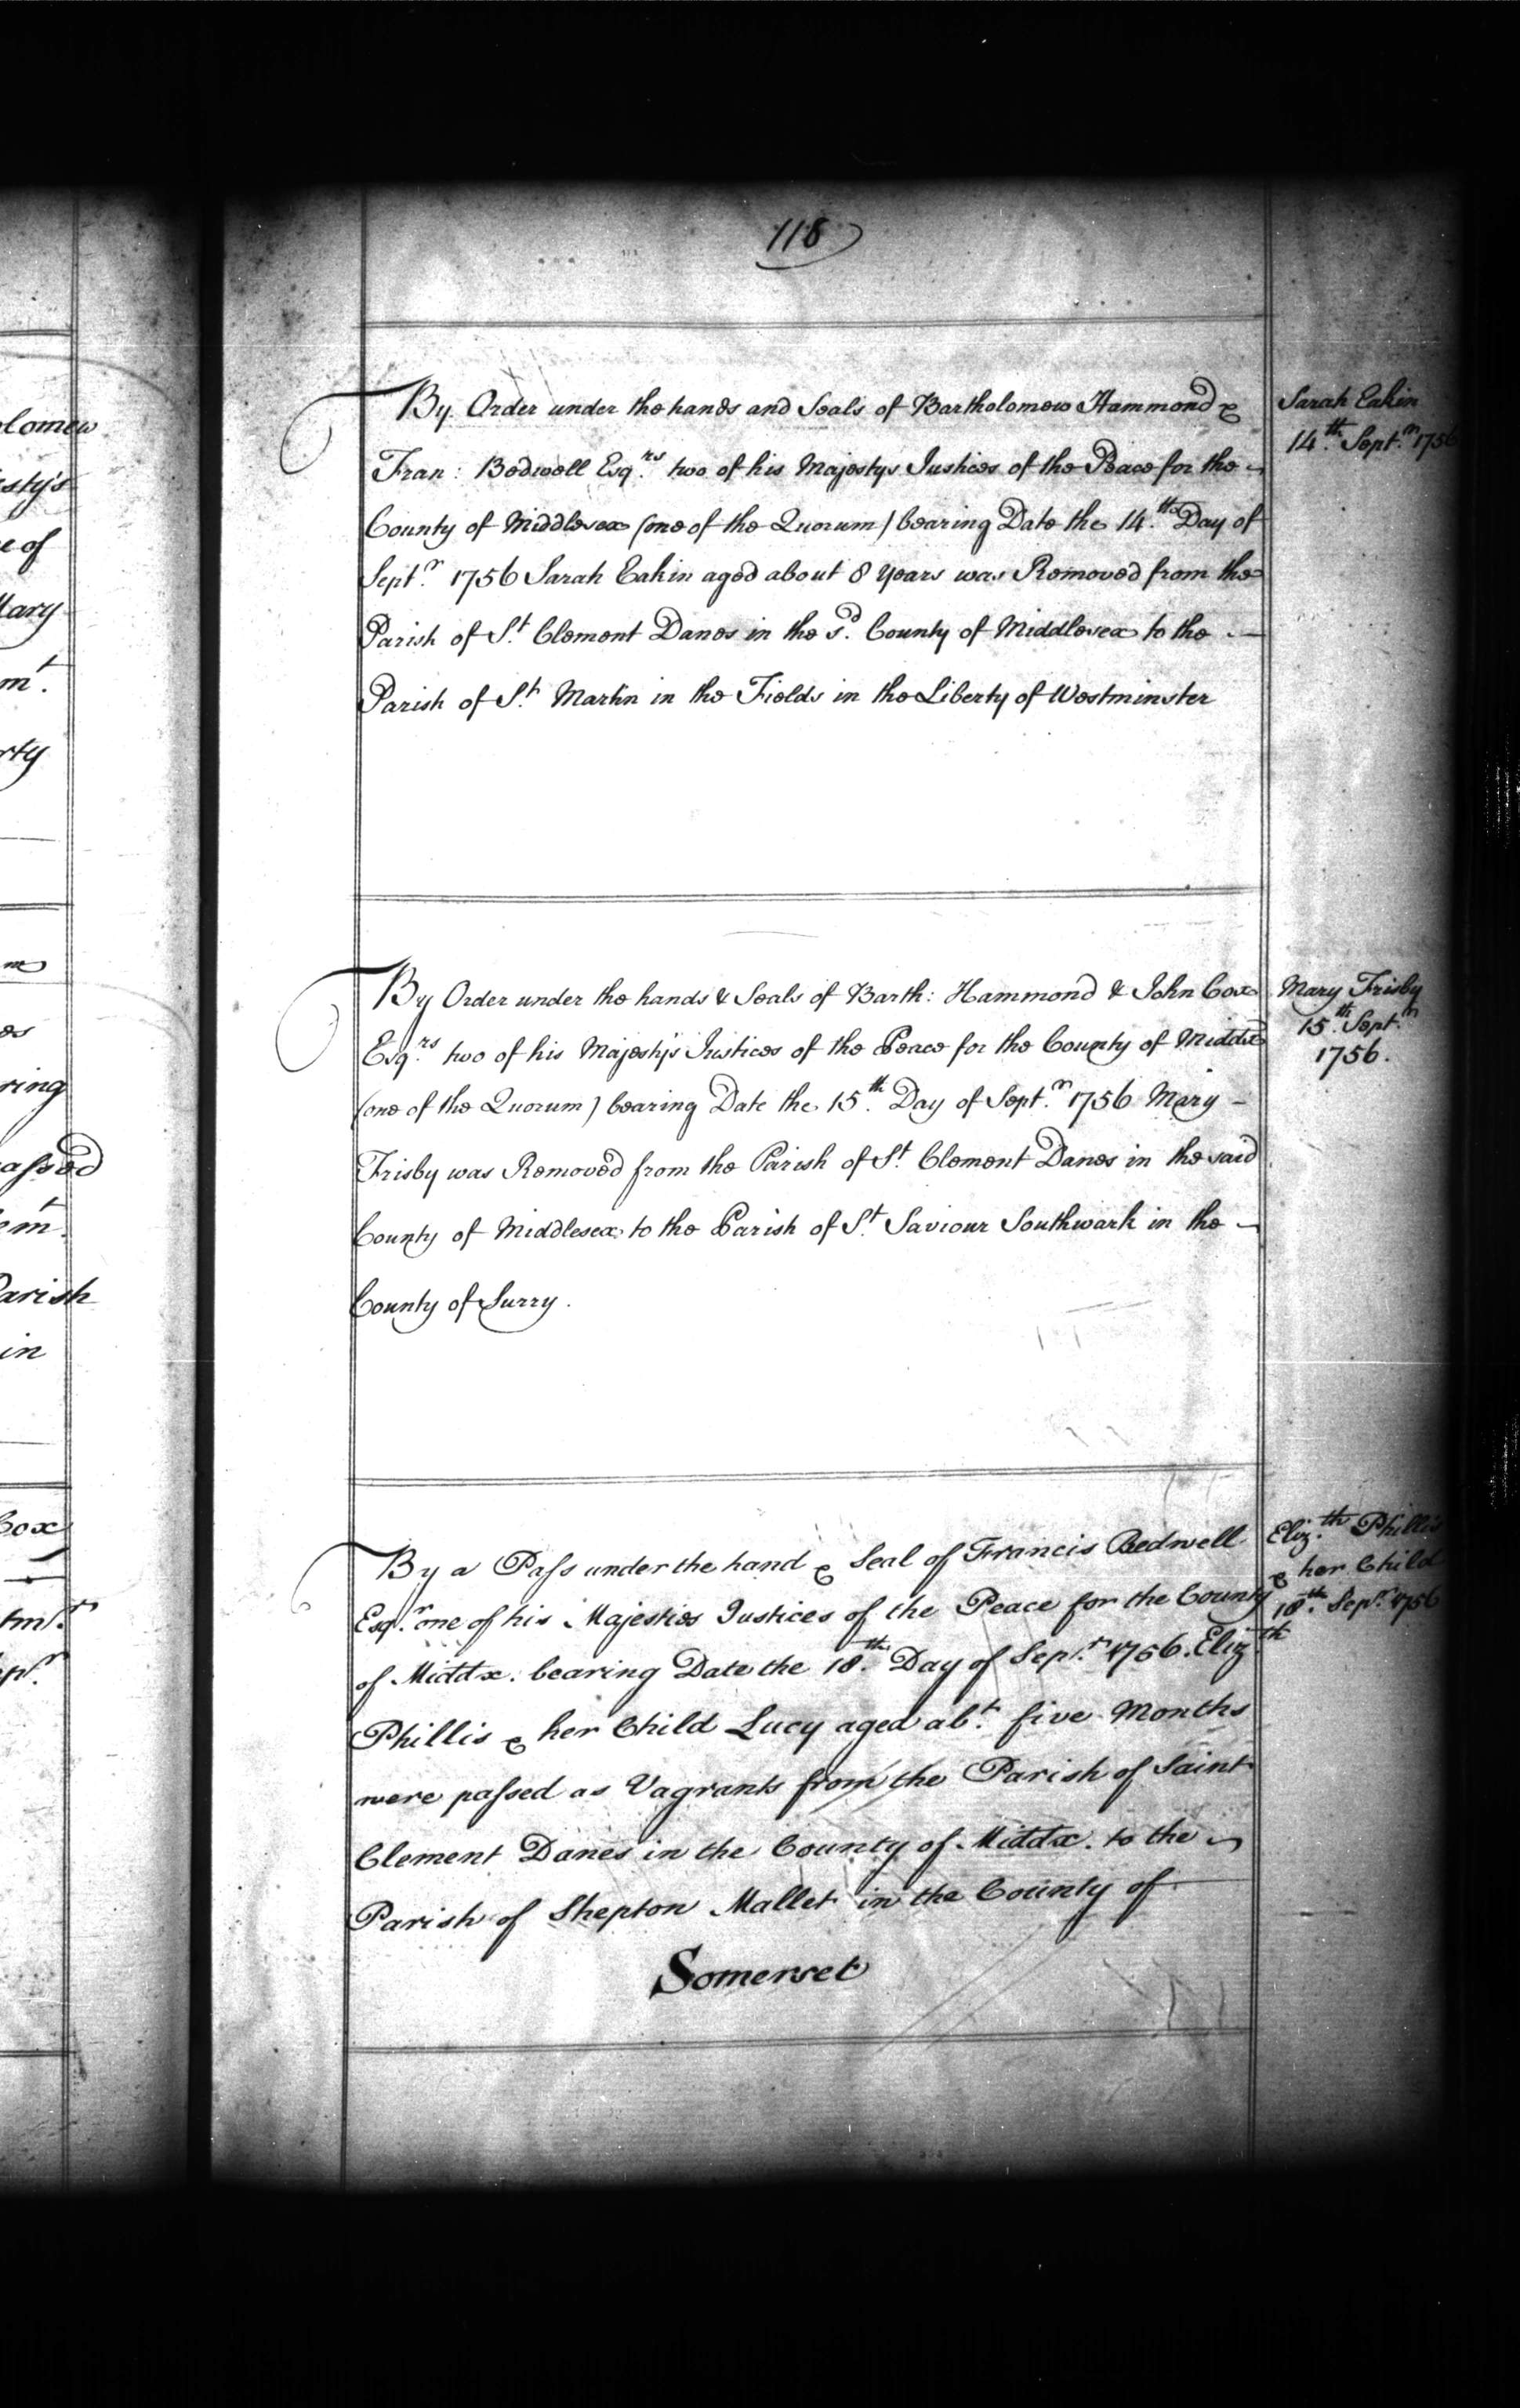 118
By Order under the hands and Seals of Bartholomew Hammond &
Fran: Bedwell Esqrs. two of his Majestys Justices of the Peace for the
County of Middlesex (one of the Quorum) bearing Date the 14.th Day of
Septr. 1756 Sarah Eakin aged about 8 Years was Removed from the
Parish of St. Clement Danes in the sd. County of Middlesex to the
Parish of St. Martin in the Fields in the Liberty of Westminster
Sarah Eakin
14.th Septr. 1756
By Order under the hands & Seals of Barth: Hammond & John Cox
Esqrs. two of his Majesty's Justices of the Peace for the County of Middx
(one of the Quorum) bearing Date the 15.th Day of Septr. 1756 Mary
Frisby was Removed from the Parish of St. Clement Danes in the said
County of Middlesex to the Parish of St. Saviour Southwark in the
County of Surry.
Mary Frisby
15.th Septr.
1756.
By a Pass under the hand & Seal of Francis Bedwell
Esqr. one of his Majesties Justices of the Peace for the County
of Middx. bearing Date the 18.th Day of Sepr. 1756. Eliz.th
Phillis & her Child Lucy aged abt. five Months
were passed as Vagrants from the Parish of Saint
Clement Danes in the County of Middx. to the
Parish of Shepton Mallet in the County of
Somerset
Eliz.th Phillis
& her Child
18.th Sepr. 1756
lomew
sty's
e of
Mary
mt.
rty
es
ring
assed
emt.
Parish
in
Cox